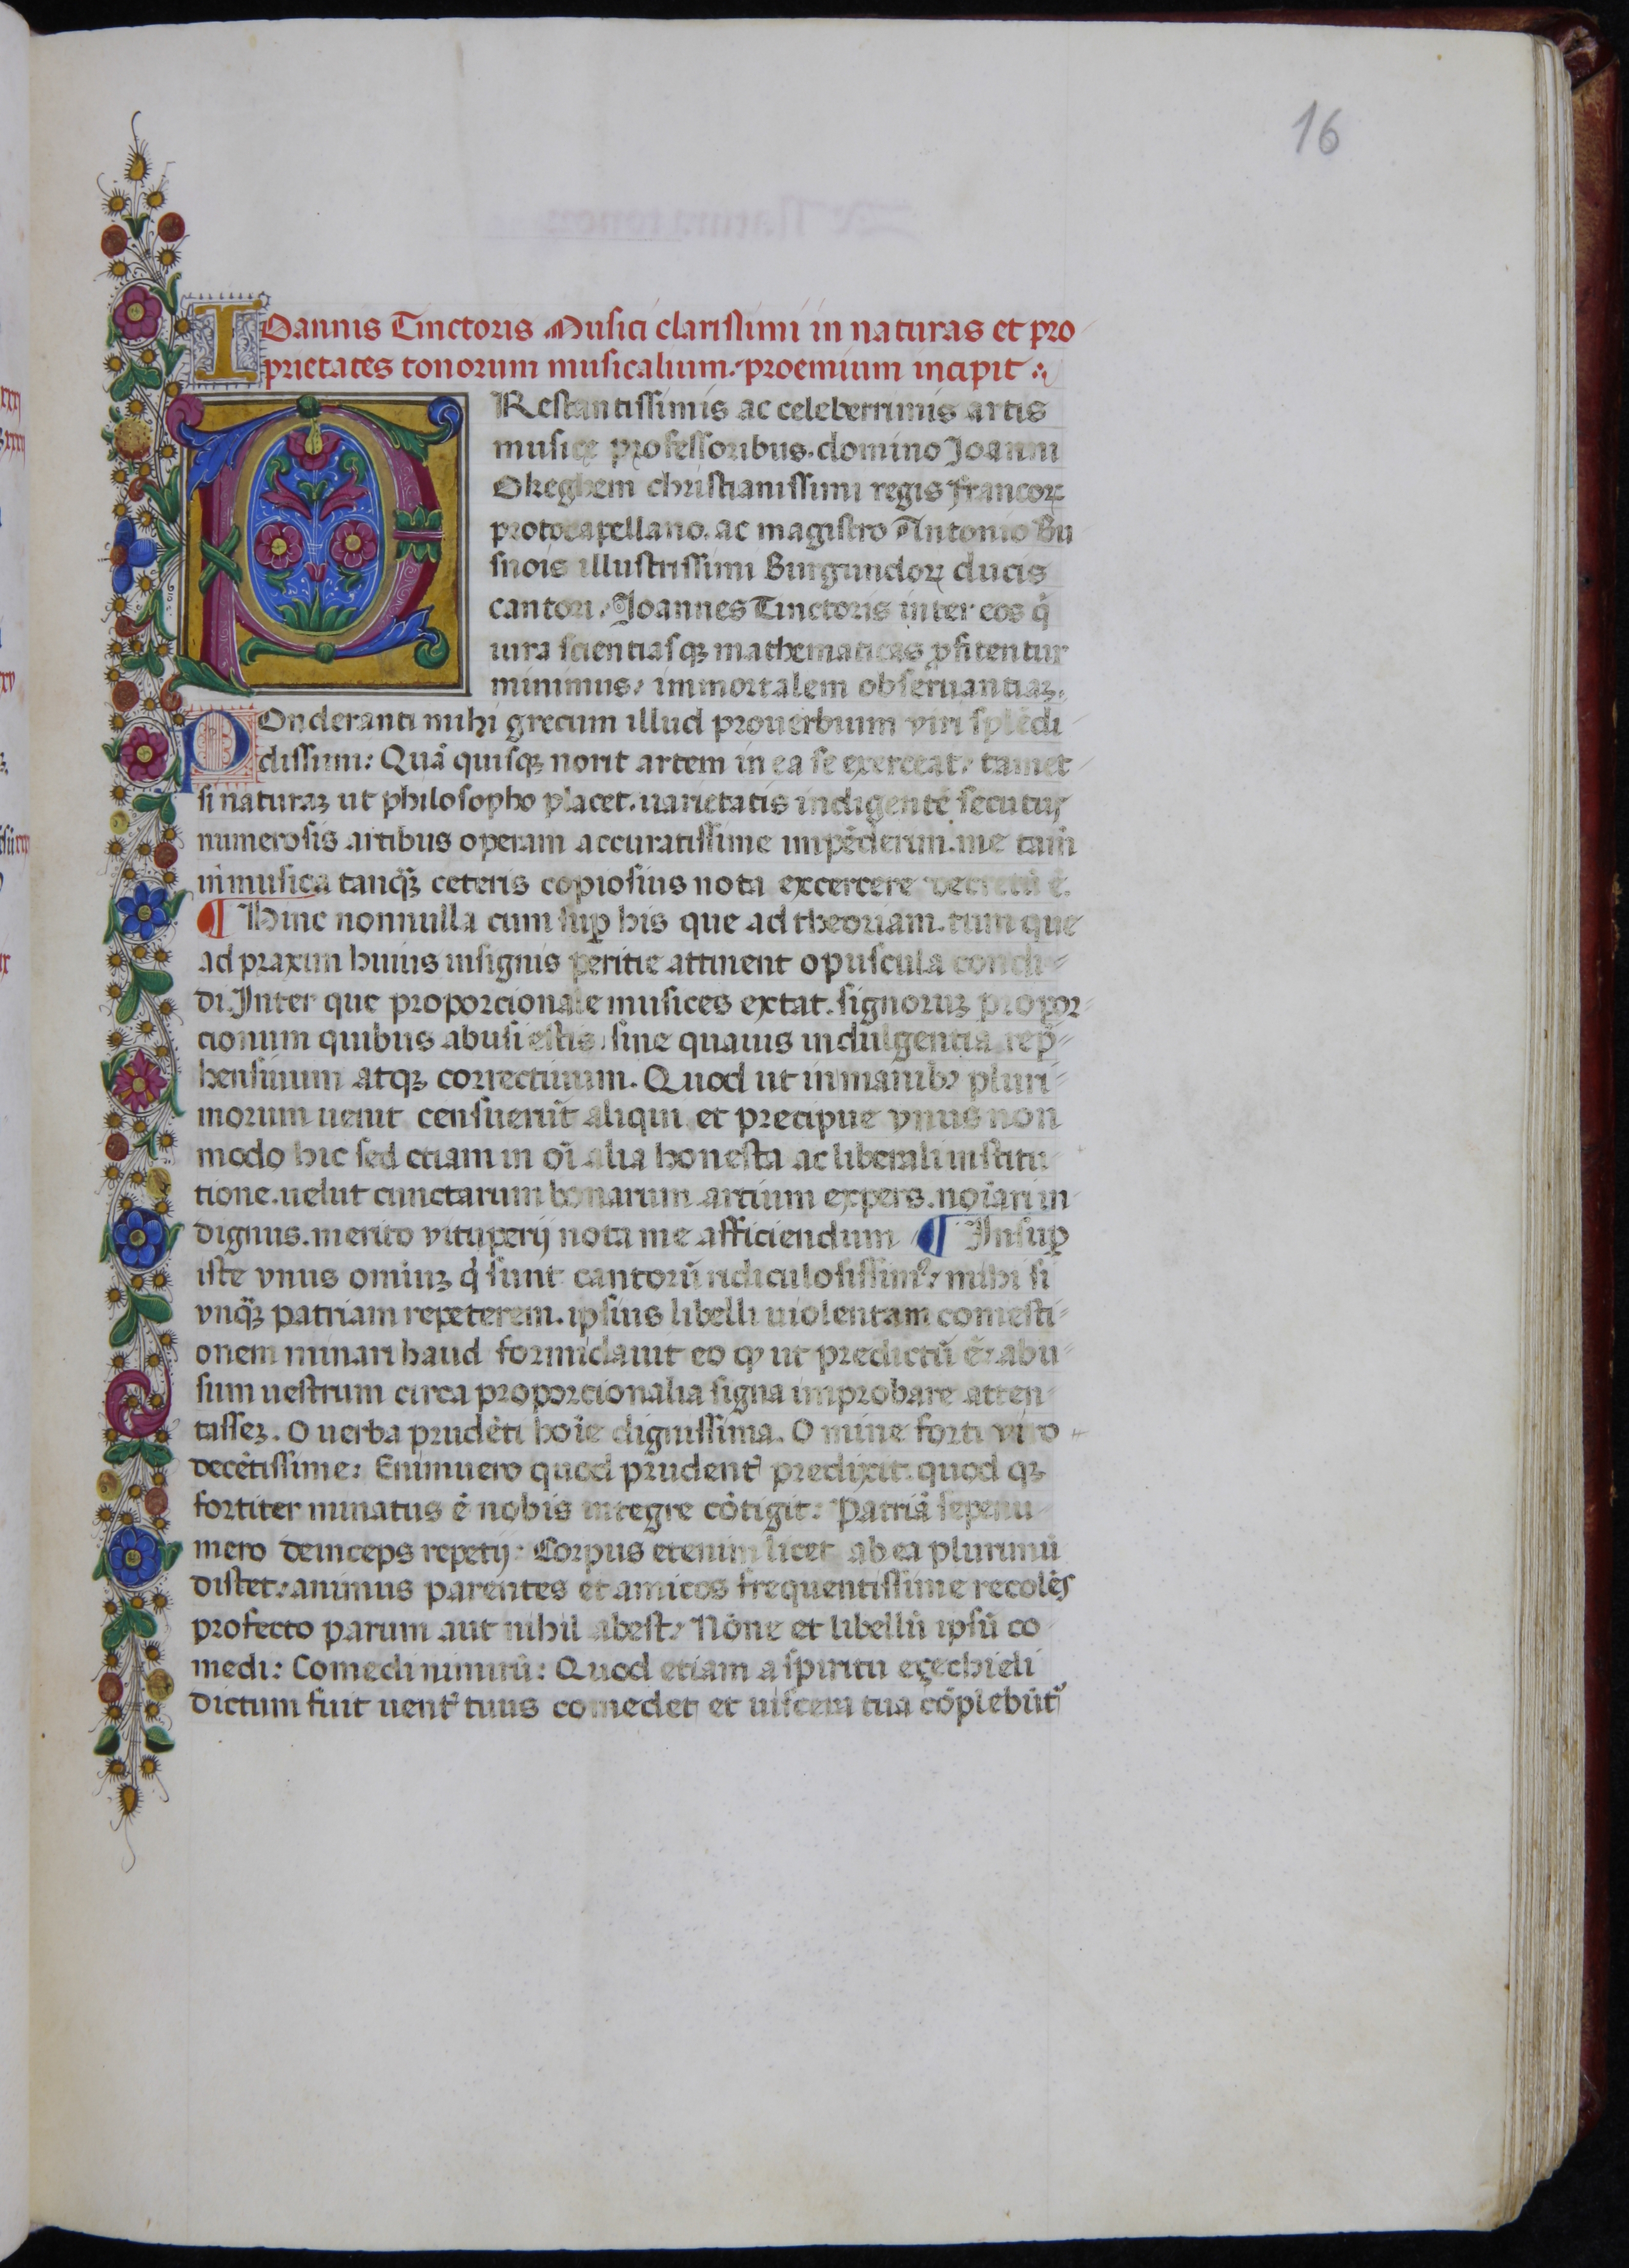 16
IOannis Tinctoris Musici clarissimi in naturas et pro
prietates tonorum musicalium. proemium incipit
PRestantissimis ac celeberrimis artis
musicę professoribus. domino Joanni
Okeghem christianissimi regis francoꝝ
protocapellano. ac magistro Antonio Bu
snois illustrissimi Burgundoꝝ ducis
cantori. Joannes Tinctoris inter eos q̇
iura scientiasqꝫ mathematicas ꝓfitentur
minimus, immortalem obseruantiaꝫ.
POnderanti mihi grecum illud prouerbium viri splēdi
dissimi: Quā quisqꝫ norit artem in ea se exerceat, tamet
si naturaꝫ ut philosopho placet. uarietatis indigentē secutus
numerosis artibus operam accuratissime impēderim. me tam̄
in musica tanqꝫ̄ ceteris copiosius nota excercere decretū ē.
¶ Hinc nonnulla cum suꝑ his que ad theoriam. tum que
ad praxim huius insignis peritie attinent opuscula condi
di. Inter que proporcionale musices extat. signoruꝫ propor
cionum quibus abusi estis, sine quauis indulgentia rep̄
hensiuum atqꝫ correctiuum. Quod ut in manibꝫ pluri
morum uenit censuerūt aliqui et precipue vnus non
modo hic sed etiam in oī alia honesta ac liberali institu
tione. uelut cunctarum bonarum artium expers. noīari in
dignus. merito vituperij nota me afficiendum ¶ Insuꝑ
iste vnus omiuꝫ q̇ sunt cantorū ridiculosissimꝰ, mihi si
vnqꝫ̄ patriam repeterem. ipsius libelli uiolentam comesti
onem minari haud formidauit eo ꝙ ut predictū ē, abu
sum uestrum circa proporcionalia signa improbare atten
tasseꝫ. O uerba prudēti hoīe dignissima. O mine forti viro
decētissime: Enimuero quod prudentꝭ predixit. quod qꝫ
fortiter minatus ē nobis integre cōtigit: Patriā sepenu
mero deinceps repetij: Corpus etenim licet ab ea plurimū
distet, animus parentes et amicos frequentissime recolēs
profecto parum aut nihil abest, Nōne et libellū ipsū co
medi: Comedi nimirū: Quod etiam a spiritu eçechieli
dictum fuit uentꝭ tuus comedet et uiscera tua cōplebūtꝰ